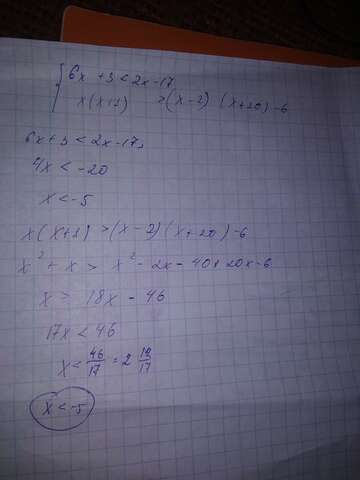 { 6x + 3 < 2x - 17,
x(x+1) > (x-2) (x+20) -6
6x + 3 < 2x - 17,
4x < -20
x < -5
x(x+1) > (x-2)(x+20) -6
x² + x > x² - 2x - 40 + 20x - 6
x > 18x - 46
17x < 46
x < 46/17 = 2 12/17
x < -5